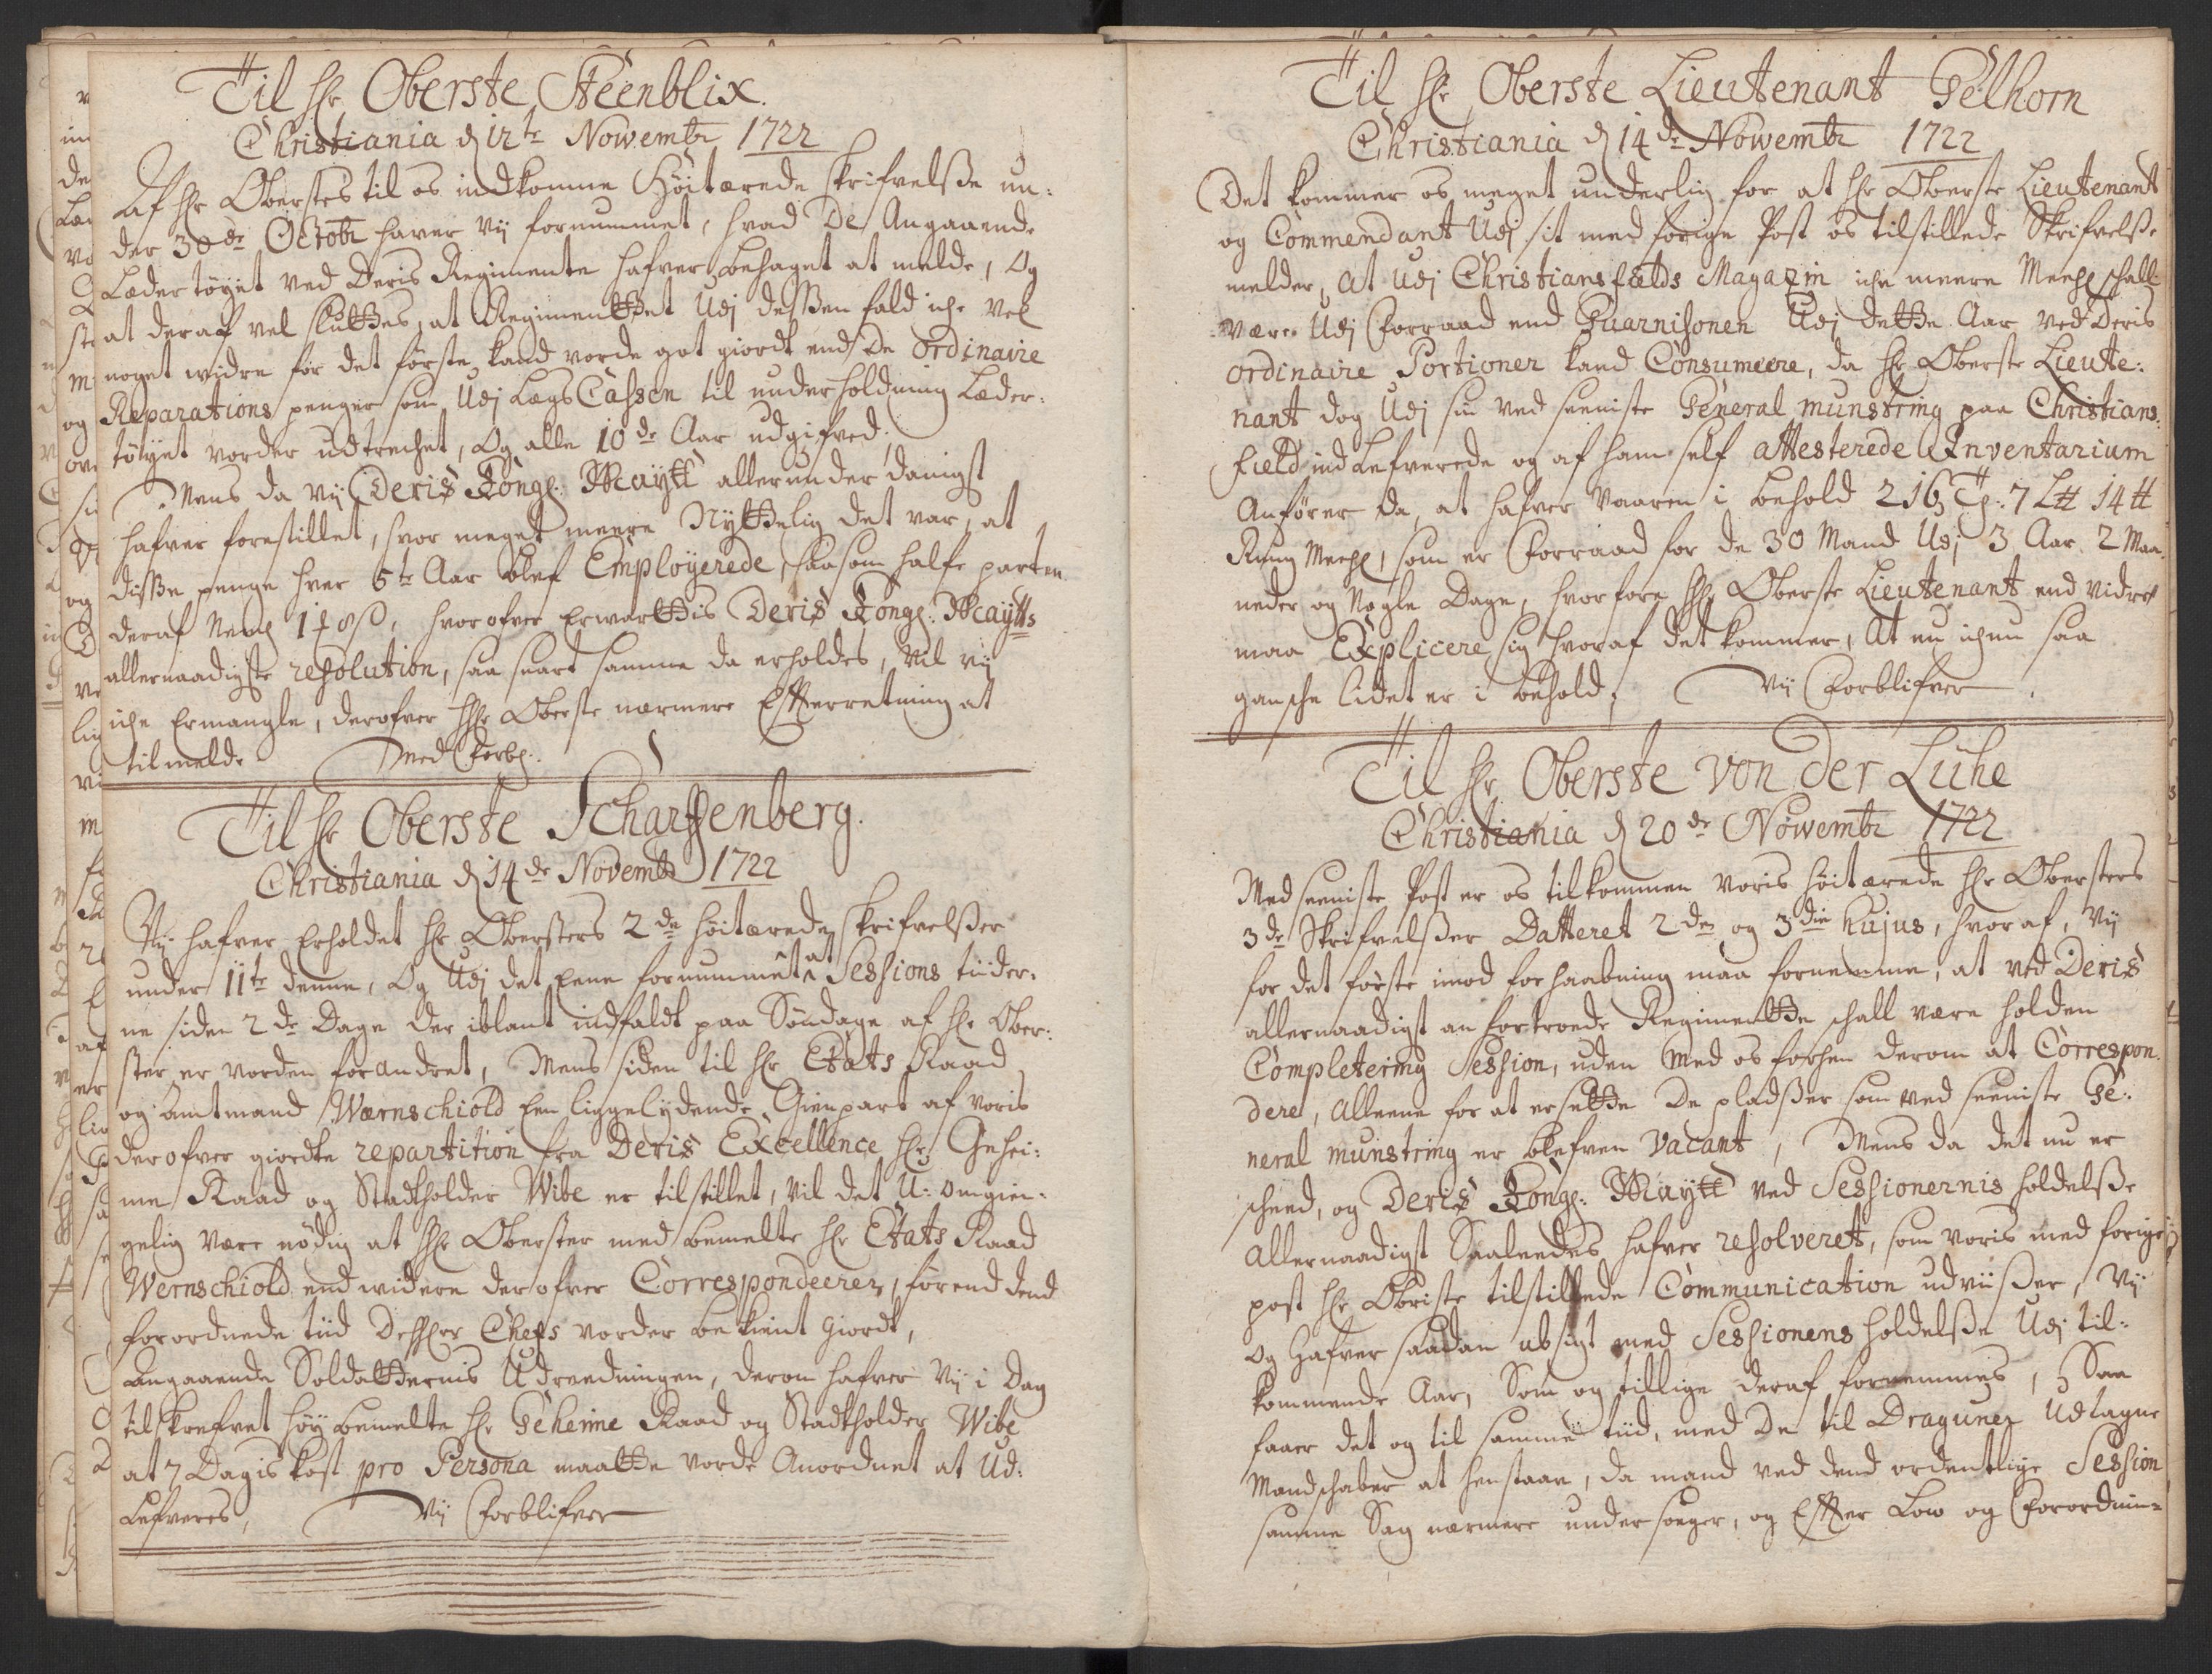 Til hr Oberste Steenblix.
Christiania d 12te Nowembr 1722
Af hr Oberstes til os indkomne Höitærede skrifvelsse un:
der 30de Octobr haver vij fornummet, hvad De Angaaende
Lædertöÿet ved Deris Regimente hafver behaget at melde, Og
at deraf vel sluttes, at Regimenttet Udj dessen fald iche vel
noget widre för det förste kand vorde got giordt end De ordinaire
Reparations penger som Udj LægsCassen til underholdning Læder:
töÿet vorder udtrechet, Og alle 10de Aar udgifved.
Mens da vij Deris Kongl: Maÿtt allerunderdanigst
hafver forestillet, hvor meget meere Nyttelig det var, at
disse penge hver 5te Aar blef Emploÿerede, saasom halfe parten
deraf Neml 1 8 , hvorofver Erwarttis Deris Kongl: Maÿtts
allernaadigste resolution, saa snart samme da erholdes, vil vij
iche Ermangle, derofver Hr Oberste nærmere Efterretning at
tilmelde Med Forbl:
Til hr Oberste Scharffenberg.
Christiania d 14de Novembr 1722
Vij hafver Erholdet hr Obersters 2de höitærede skrifvelsser
under 11te denne, Og Udj det Eene fornummet at Sessions tiider:
ne siden 2de Dage der iblant indfaldt paa Söndage af hr Ober:
ster er vorden forandret, Mens siden til hr Etats Raad
og Amtmand Wærnschiold Een liggelydende Gienpart af voris
derofver giordte repartition fra Deris Excellence hr Gehei:
me Raad og Stadtholder Wibe er tilstillet, vil det U: omgien:
gelig være nödig at hr Oberster med bemelte hr Etats Raad
Wernschiold end widere derofver Correspondeerer, förend dend
forordnede tiid Chefs vorder bekient giordt,
Angaaende Soldatternis Udreedningen, derom hafver vij i Dag
tilskrefvet höÿbemelte hr Geheime Raad og Stadtholder Wibe
at 7 Dagis kost pro Persona maatte vorde Anordnet at Ud:
Lefveres, Vij Forblifver
Til hr Oberste Lieutenant Gelhorn
Christiania d 14de Nowembr 1722
Det kommer os meget underlig for at hr Oberste Lieutenant
og Commendant Udj sit med forige Post os tilstillede Skrifvelsse
melder, at udj Christiansfælds Magazin iche meere Meehl schall
være Udj Forraad end Guarnisonen Udj dette Aar ved Deris
ordinaire Portioner kand Consumeere, da hr Oberste Lieute:
nant dog Udj sin ved seeniste General munstring paa Christians:
fæld indLefverede og af ham self attesterede Inventarium
Anförer da, at hafver vaaren i behold 216 Tr: 7 L℔ 14 ℔
Rung Meehl, som er Forraad for de 30 Mand Udj 3 Aar 2 Maa
neder og Nogle Dage, hvorfore hr Oberste Lieutenant end vidre
maa Explicere sig hvoraf det kommer, At nu ichun saa
gansche lidet er i behold; Vij Forblifver
Til hr Oberste von der Lühe
Christiania d 20de Nowembr 1722
Med seeniste Post er os tilkommen voris höitærede hr Obersters
3de Skrifvelsser Datteret 2den og 3die hujus, hvoraf, Vij
for det förste imod forhaabning maa fornemme, at ved Deris
allernaadigst anfortroede Regimentte schall være holden
Completering Session, uden Med os forhen derom at Correspon:
dere, Alleene for at ersette De pladsser som ved seeniste Ge:
neral munstring er blefven Vacant, Mens da det nu er
scheed, og Deris Kongl: Maÿtt ved Sessionernis holdelsse
Allernaadigst Saaleedes hafver resolveret, som voris med forige
post hr Obriste tilstillede Communication udviisser, Vij
og Hafver saadan absigt med Sessionens holdelsse Udj til:
kommende Aar, Som og tillige deraf fornemmes, Saa
faaer det og til samme tiid, med De til Draguner Udtagne
Mandschaber at henstaae, da mand ved dend ordentlige Session
samme Sag nærmere undersöger, og Efter Low og Forordnin=